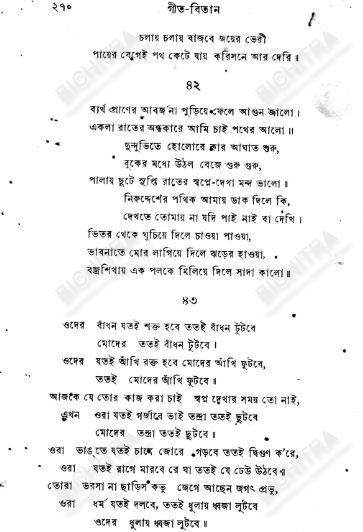 ২১০ গীত-বিতান
চলায় চলায় বাজবে জয়ের ভেরী
পায়ের বেগেই পথ কেটে যায় করিসনে আর দেরি॥
৪২
ব্যর্থ প্রাণের আবর্জনা পুড়িয়ে ফেলে আগুন জ্বালো।
একলা রাতের অন্ধকারে আমি চাই পথের আলো॥
দুন্দুভিতে হোলোরে কার আঘাত শুরু,
বুকের মধ্যে উঠল বেজে গুরু গুরু,
পালায় ছুটে সুপ্তি রাতের স্বপ্নে-দেখা মন্দ ভালো॥
নিরুদ্দেশের পথিক আমায় ডাক দিলে কি,
দেখতে তোমায় না যদি পাই নাই বা দেখি।
ভিতর থেকে ঘুচিয়ে দিলে চাওয়া পাওয়া,
ভাবনাতে মোর লাগিয়ে দিলে ঝড়ের হাওয়া,
বজ্রশিখায় এক পলকে মিলিয়ে দিলে সাদা কালো॥
৪৩
ওদের বাঁধন যতই শক্ত হবে ততই বাঁধন টুটবে
মোদের ততই বাঁধন টুটবে।
ওদের যতই আঁখি রক্ত হবে মোদের আঁখি ফুটবে,
ততই মোদের আঁখি ফুটবে॥
আজকে যে তোর কাজ করা চাই স্বপ্ন দেখার সময় তো নাই,
এখন ওরা যতই গর্জাবে ভাই তন্দ্রা ততই ছুটবে
মোদের তন্দ্রা ততই ছুটবে॥
ওরা ভাঙতে যতই চাবে জোরে গড়বে ততই দ্বিগুণ ক'রে,
ওরা যতই রাগে মারবে রে ঘা ততই যে ঢেউ উঠবে॥
তোরা ভরসা না ছাড়িস কভু জেগে আছেন জগৎ প্রভু,
ওরা ধর্ম যতই দলবে, ততই ধুলায় ধ্বজা লুটবে॥
ওদের ধুলায় ধ্বজা লুটবে॥
BICHITRA